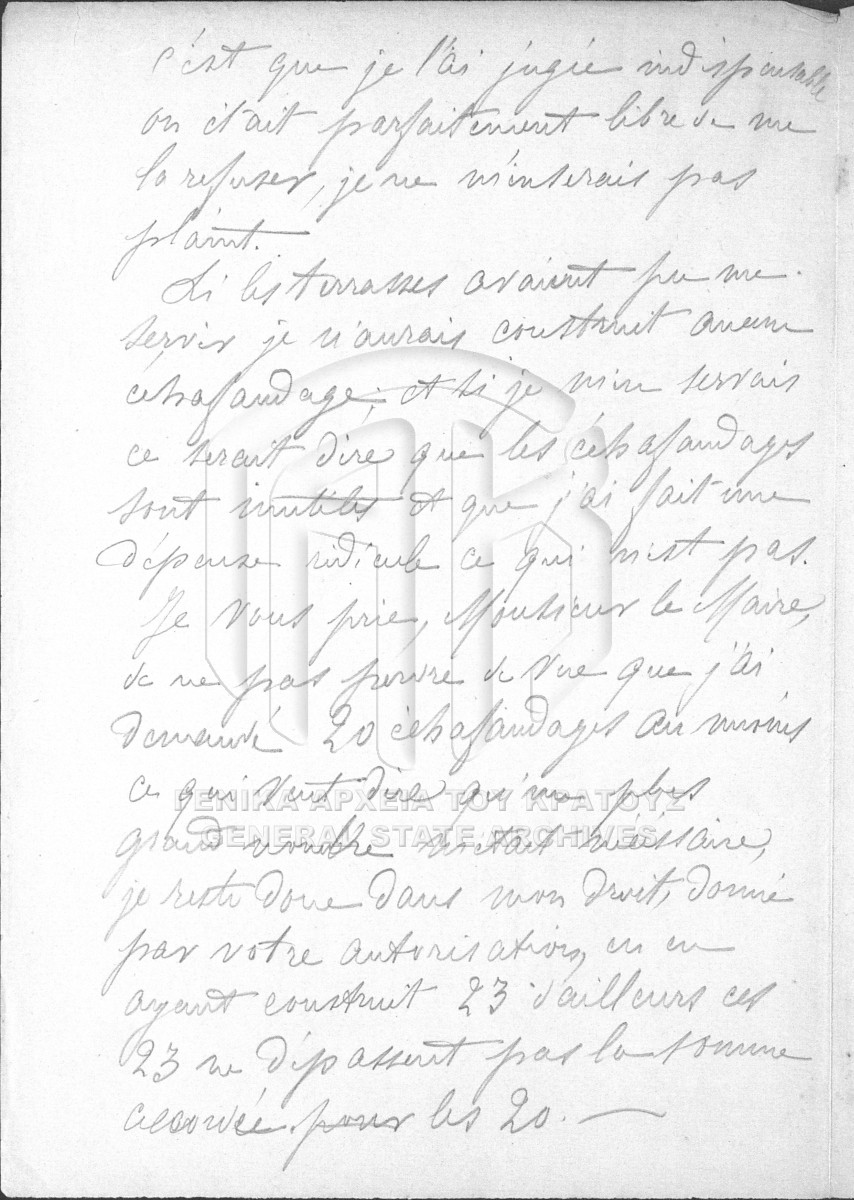 c'est que je l'ai jugée indispensable
on était parfaitement libre de me
la refuser, je ne m'en serais pas
plaint.
Si les terrasses avaient pu me
servir je n'aurais construit aucun
échafaudage; et si je m'en servais
ce serait dire que les échafaudages
sont inutiles et que j'ai fait une
dépense ridicule ce qui n'est pas.
Je vous prie, Monsieur le Maire,
de ne pas perdre de vue que j'ai
demandé 20 échafaudages au moins
ce qui veut dire qu'un plus
ΓΕΝΙΚΑ ΑΡΧΕΙΑ ΤΟΥ ΚΡΑΤΟΥΣ
grand nombre m'était nécéssaire,
GENERAL STATE ARCHIVES
je reste donc dans mon droit, donné
par votre autorisation, en en
ayant construit 23 d'ailleurs ces
23 ne dépassent pas la somme
accordée pour les 20. —